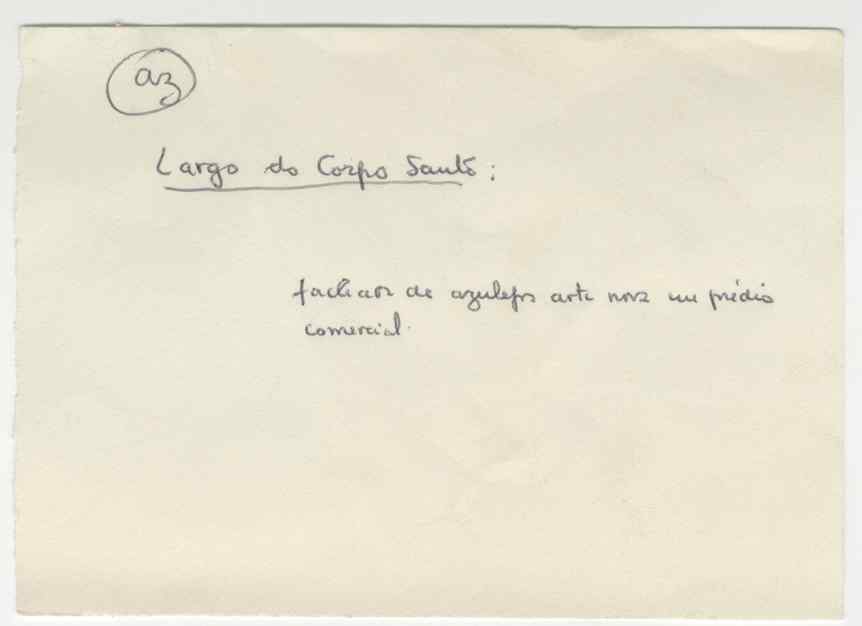 az
Largo do Corpo Santo:
fachada de azulejos arte nova num prédio
comercial.